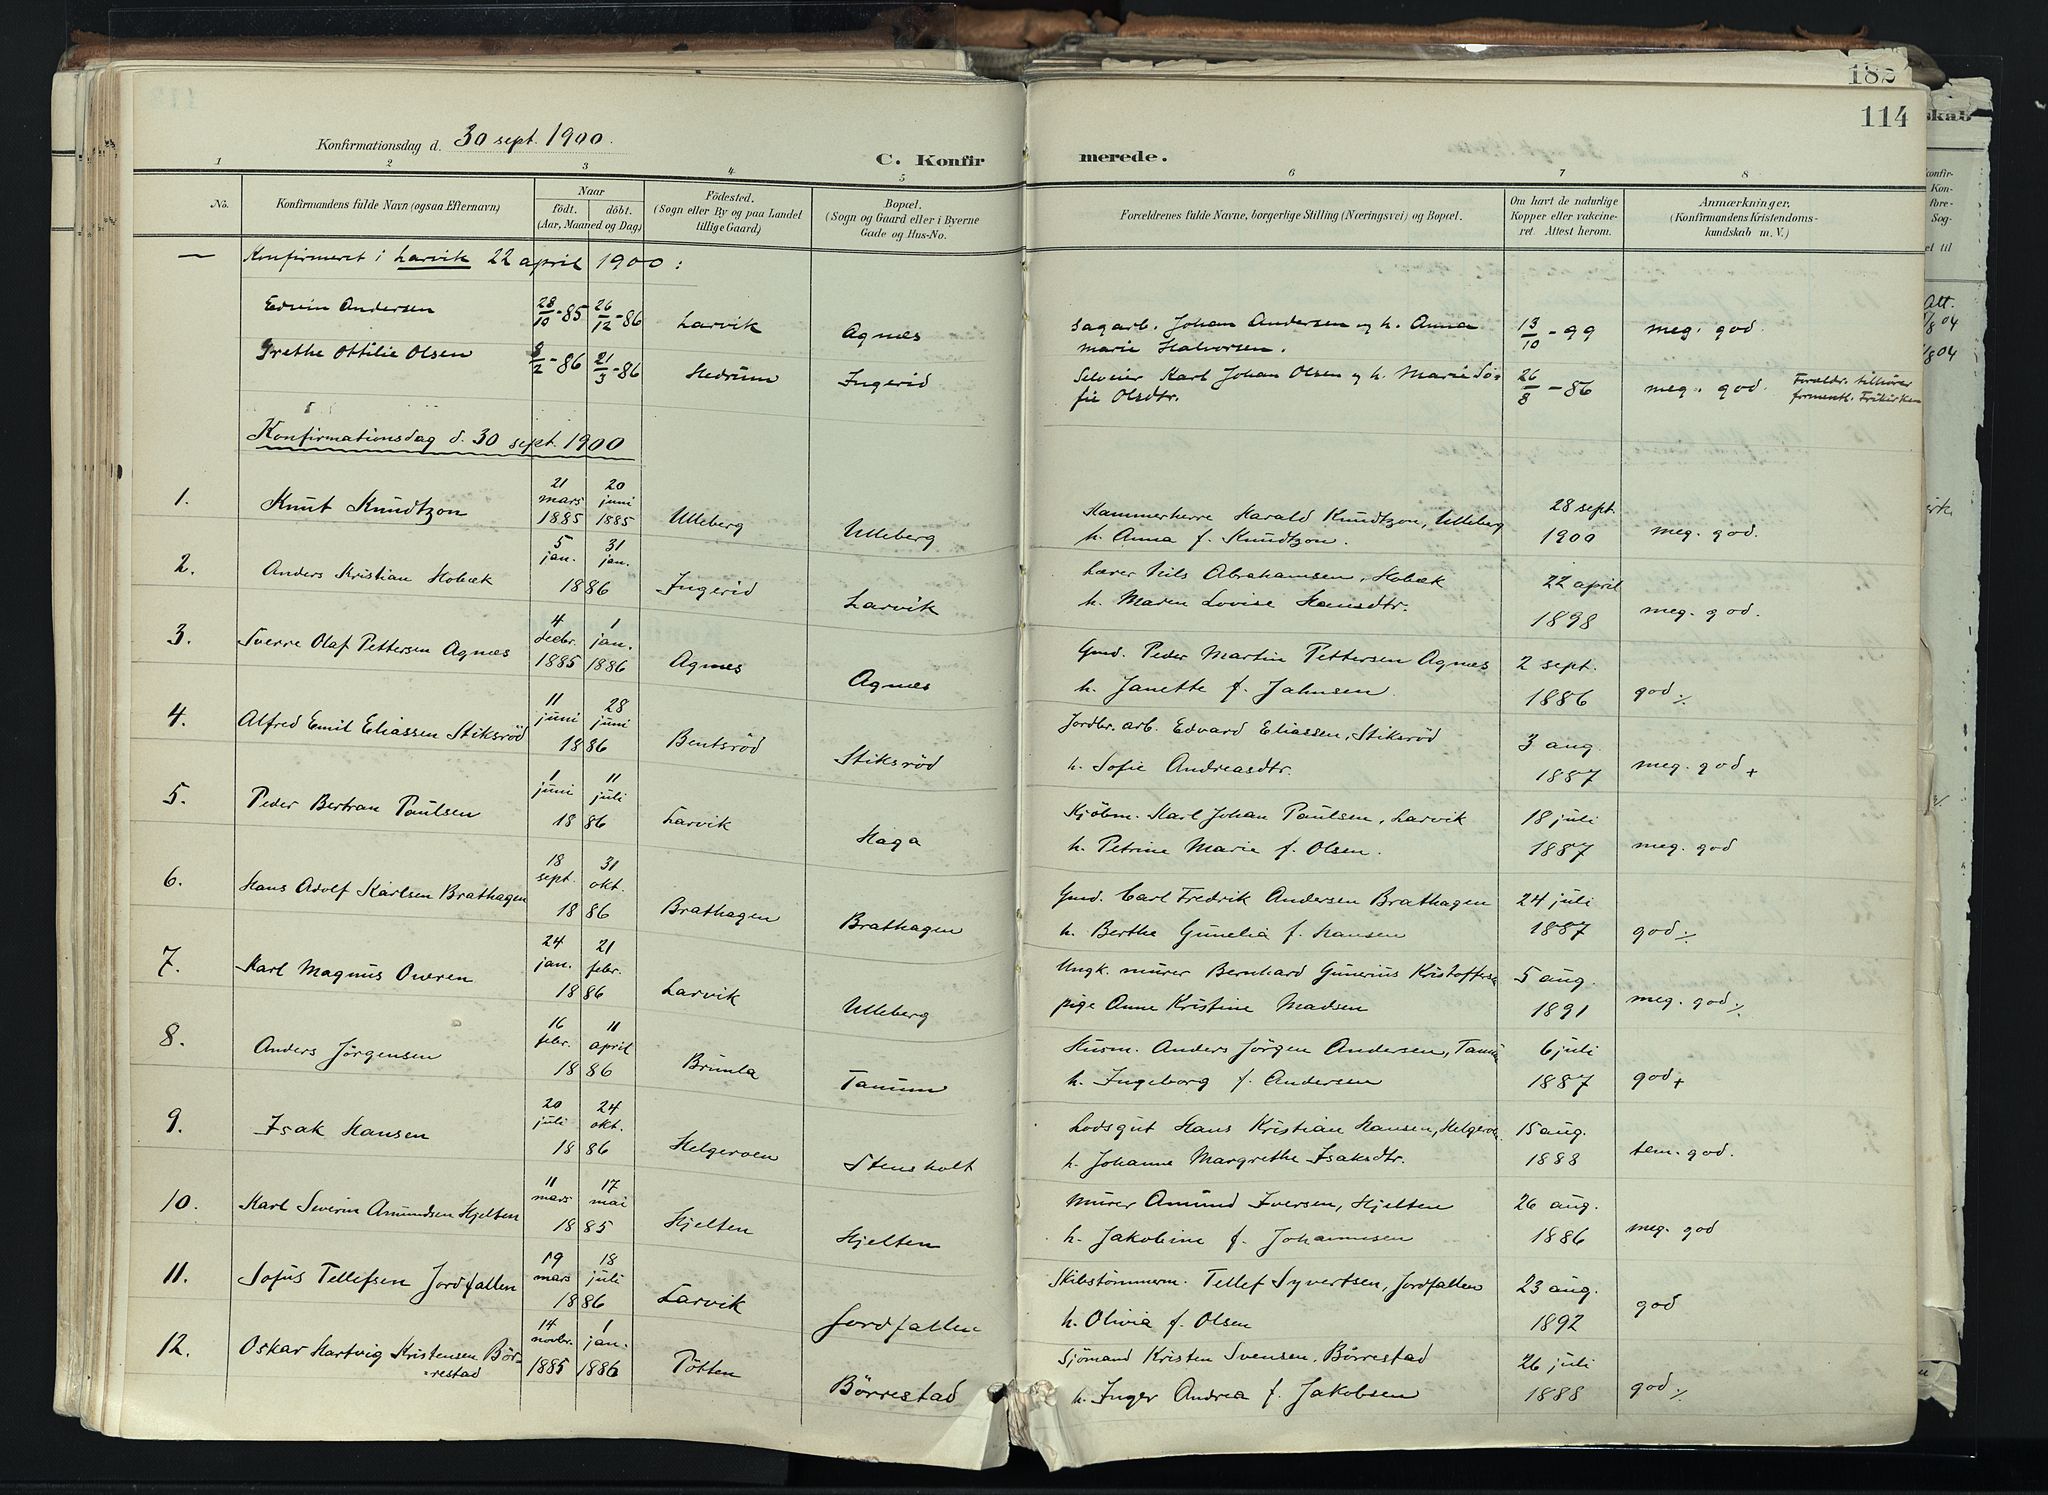 182
114
skab
Konfirmationsdag d. 30 sept. 1900.
C. Konfirmerede.
1 2 3 4 5 6 7 8
No.
Konfirmandens fulde Navn (ogsaa Efternavn)
Naar
födt. döbt.
(Aar, Maaned og Dag)
Födested.
(Sogn eller By og paa Landet
tillige Gaard)
Bopæl.
(Sogn og Gaard eller i Byerne
Gade og Hus-No.
Forældrenes fulde Navne, borgerlige Stilling (Næringsvei) og Bopæl.
Om havt de naturlige
Kopper eller vakcine-
ret. Attest herom.
Anmærkninger,
(Konfirmandens Kristendoms-
kundskab m. V.)
— Konfirmeret i Larvik 22 april 1900:
Edvin Andersen 28/10-85 26/12-86 Larvik Agnæs Sagarb. Johan Andersen og h. Anna 13/10-99 meg. god.
Marie Halvorsen.
Grethe Ottilie Olsen 8/2-86 21/3-86 Hedrum Ingerid Selveier Karl Johan Olsen og h. Marie So- 26/8-86 meg. god. Foreldr. tilhører
fie Olsdtr. forment. Frikirken
Konfirmationsdag d. 30 sept. 1900
1. Knut Knudtzon 21 mars 1885 20 juni 1885 Ulleberg Ulleberg Kammerherre Harald Knudtzon, Ulleberg 28 sept. 1900 meg. god.
h. Anna f. Knudtzon.
2. Anders Kristian Hobæk 5 jan. 31 jan. 1886 Ingerid Larvik Lærer Nils Abrahamsen, Hobæk 22 april 1898 meg. god.
h. Maren Lovise Hansdtr.
3. Sverre Olaf Pettersen Agnæs 4 decbr. 1885 1 jan. 1886 Agnæs Agnæs Gmd. Peder Martin Pettersen Agnæs 2 sept. 1886 god ./.
h. Janette f. Jahnsen.
4. Alfred Emil Eliassen Stiksröd 11 juni 28 juni 1886 Bentsröd Stiksröd Jordbr. arb. Edvard Eliassen, Stiksröd 3 aug. 1887 meg. god +
h. Sofie Andreasdtr.
5. Peder Bertran Paulsen 1 juni 11 juli 1886 Larvik Haga Kjöbm. Karl Johan Paulsen, Larvik 18 juli 1887 meg. god
h. Petrine Marie f. Olsen.
6. Hans Adolf Karlsen Brathagen 18 sept. 31 okt. 1886 Brathagen Brathagen Gmd. Carl Fredrik Andersen Brathagen 24 juli 1887 god ./.
h. Berthe Gunelia f. Hansen
7. Karl Magnus Oweren 24 jan. 21 febr. 1886 Larvik Ulleberg Ungk. murer Bernhard Gunerius Kristoffersen 5 aug. 1891 meg. god ./.
pige Anne Kristine Madsen
8. Anders Jörgensen 16 febr. 11 april 1886 Brunla Tanum Husm. Anders Jörgen Andersen, Tanum 6 juli 1887 god +
h. Ingeborg f. Andersen
9. Isak Hansen 20 juli 24 okt. 1886 Helgeroen Stensholt Lodsgut Hans Kristian Hansen, Helgeroen 15 aug. 1888 tem. god.
h. Johanne Margrethe Isaksdtr.
10. Karl Severin Amundsen Hjelten 11 mars 17 mai 1885 Hjelten Hjelten Murer Amund Iversen, Hjelten 26 aug. 1886 meg. god
h. Jakobine f. Johannesen
11. Sofus Tellefsen Jordfallen 19 mars 18 juli 1886 Larvik Jordfallen Skibstömmerm. Tellef Syvertsen, Jordfallen 23 aug. 1892 god
h. Olivia f. Olsen
12. Oskar Hartvig Kristensen Bör- 14 novbr. 1885 1 jan. 1886 Pötten Börrestad Sjömand Kristen Svensen, Börrestad 26 juli 1888 god ./.
restad h. Inger Andrea f. Jakobsen